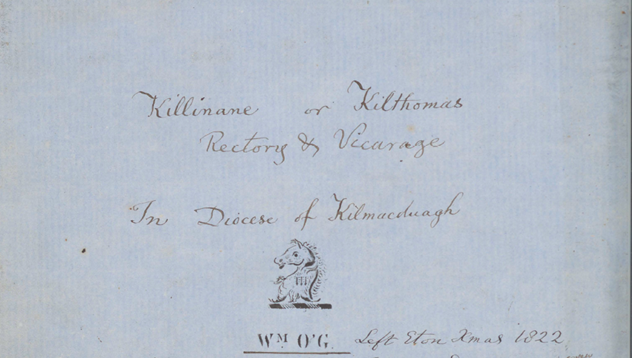 Killinane or Kilthomas
Rectory & Vicarage
In Diocese of Kilmacduagh
Wᴹ O'G. Left Eton Xmas 1822